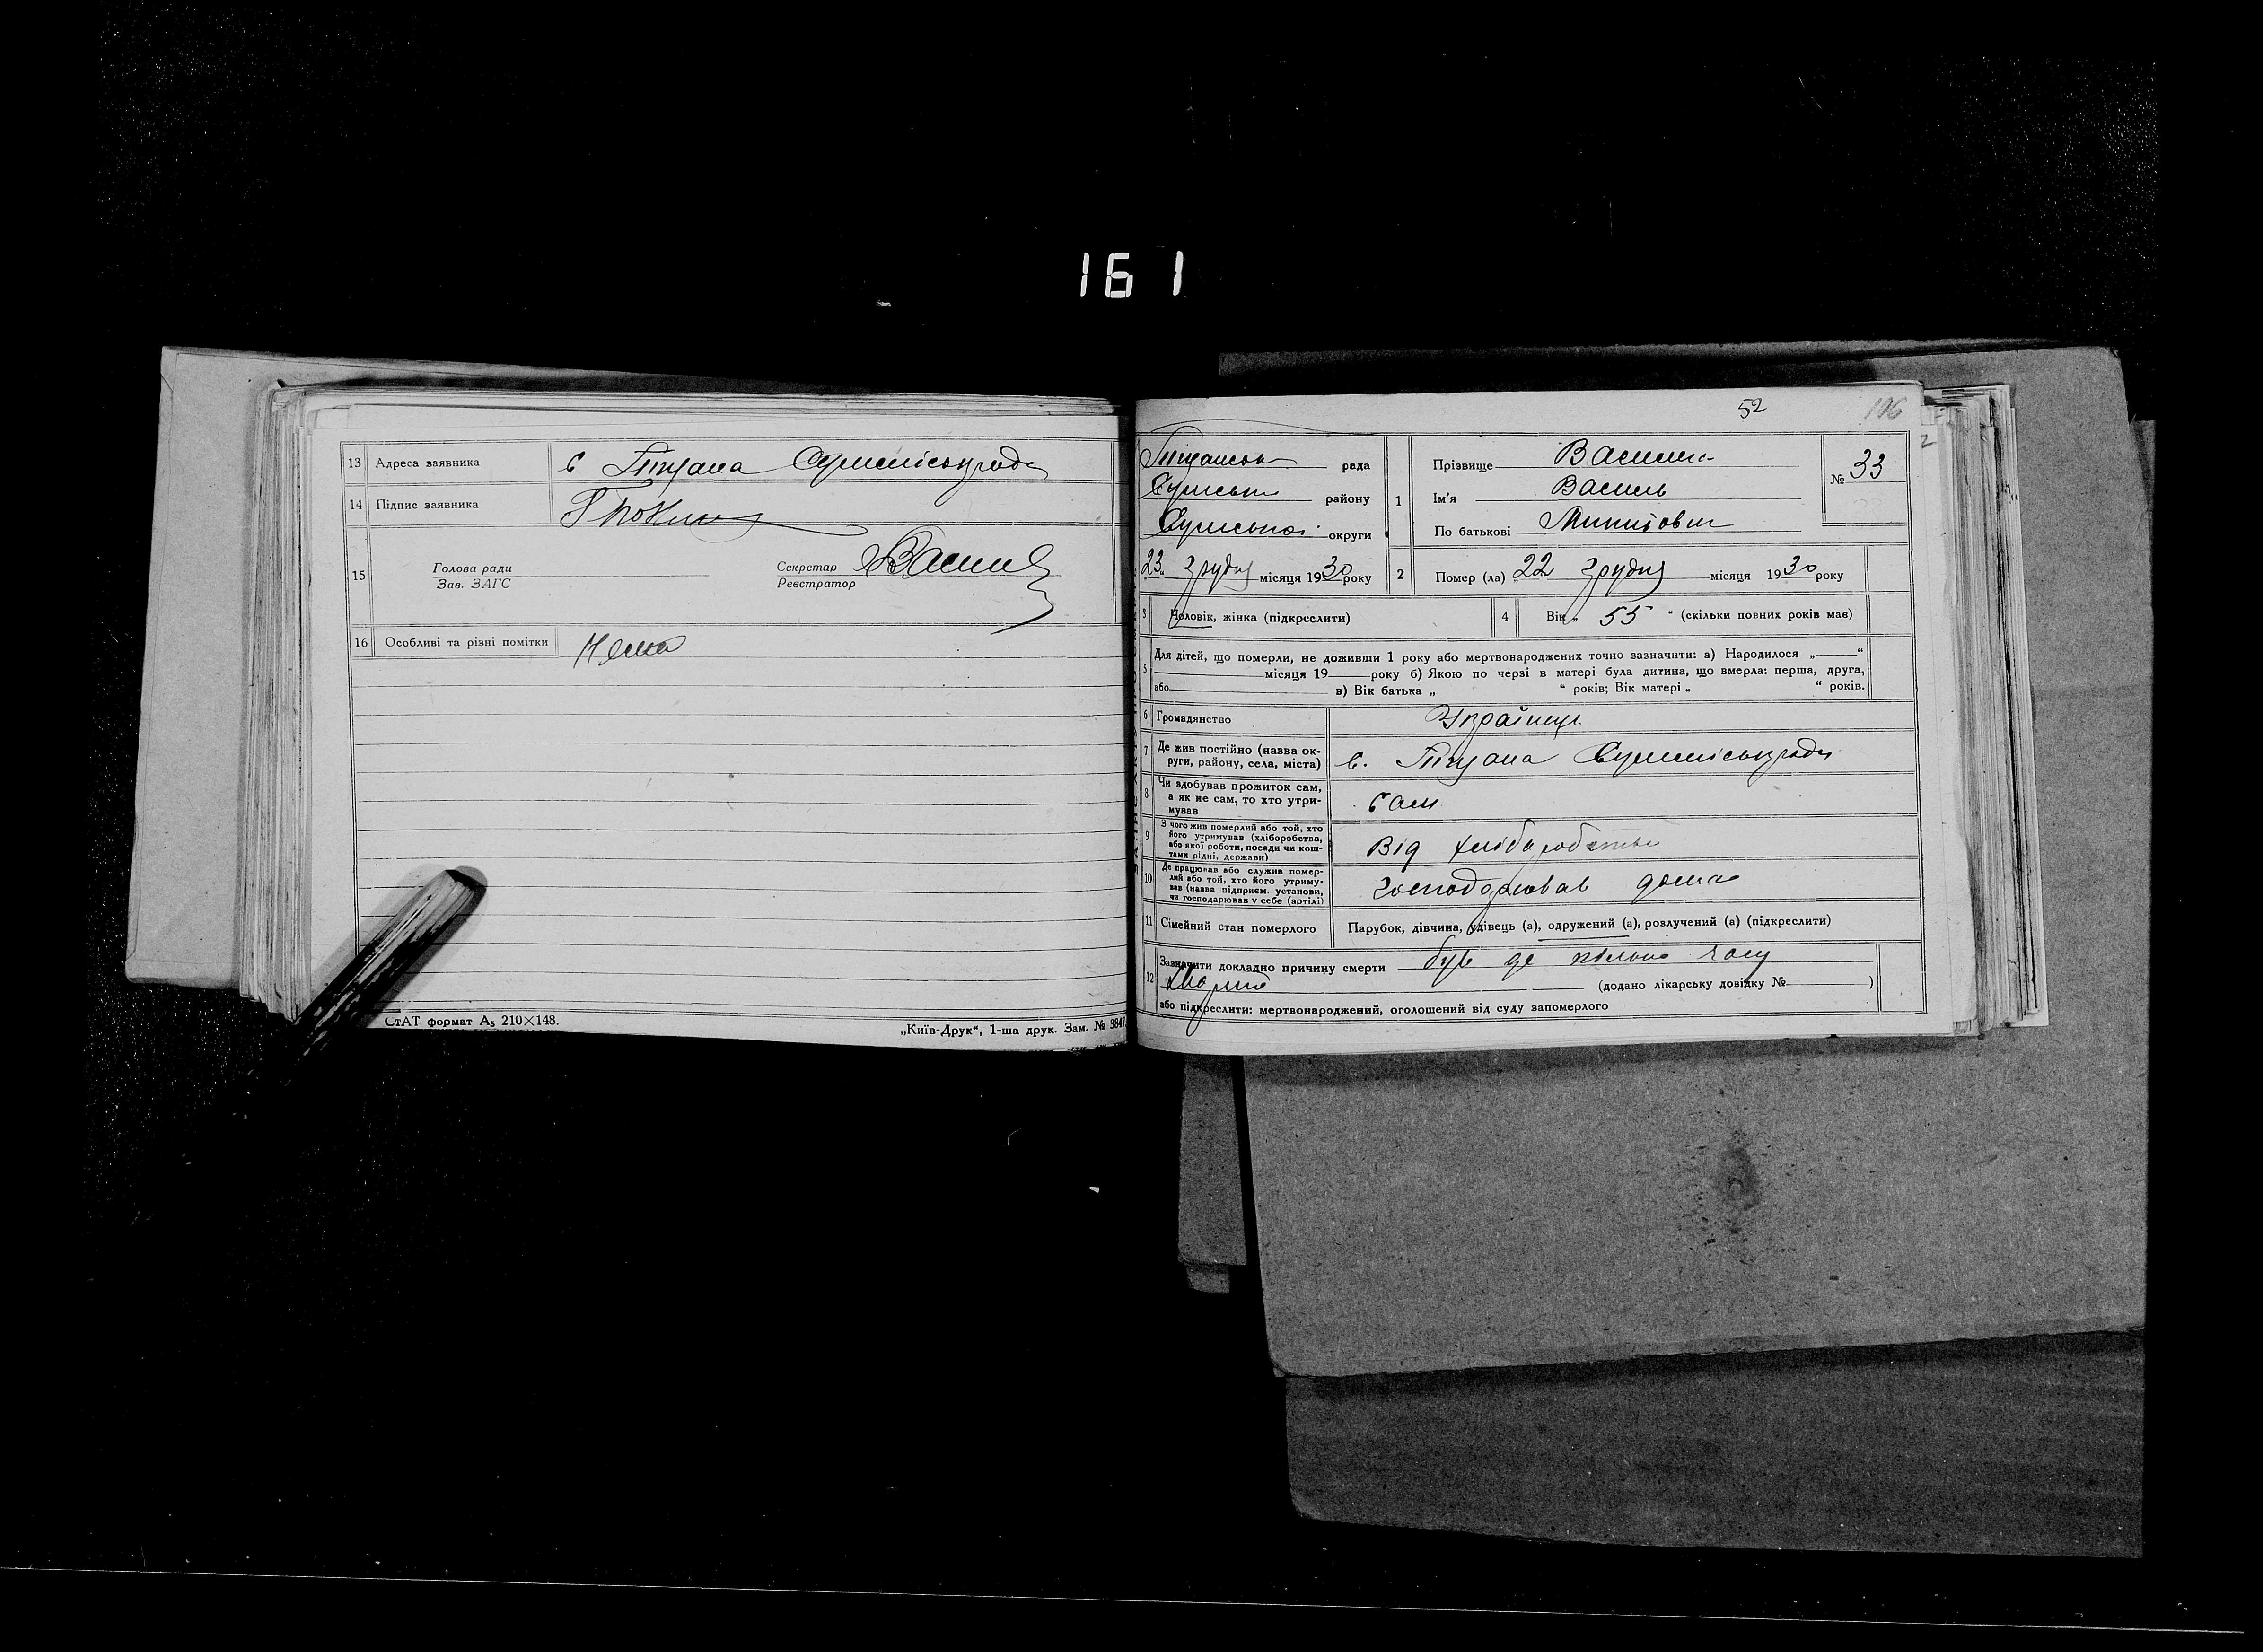 161
13 Адреса заявника с Піщана Сумміськради
14 Підпис заявника
15 Голова ради
Зав. ЗАГС
Секретар
Реєстратор
16 Особливі та різні помітки Нема
СтАТ формат А₅ 210×148.
„Київ-Друк“, 1-ша друк. Зам. № 3847.
52
106
Піщанська рада
Сумськ району
Сумської округи
23 грудня місяця 1930 року
1 Прізвище
Ім'я Василь
По батькові Микитович
№ 33
2 Помер (ла) „22 грудня місяця 1930 року
3 Чоловік, жінка (підкреслити)
4 Вік „ 55 “ (скільки повних років має)
5 Для дітей, що померли, не доживши 1 року або мертвонароджених точно зазначити: а) Народилося „ “
місяця 19 року б) Якою по черзі в матері була дитина, що вмерла: перша, друга,
або в) Вік батька „ “ років; Вік матері „ “ років.
6 Громадянство Українець
7 Де жив постійно (назва ок-
руги, району, села, міста) с. Піщана Сумміськради
8 Чи здобував прожиток сам,
а як не сам, то хто утри-
мував сам
9 З чого жив померлий або той, хто
його утримував (хліборобства,
або якої роботи, посади чи кош-
тами рідні, держави) Від хліборобства
10 Де працював або служив помер-
лий або той, хто його утриму-
вав (назва підприєм. установи,
чи господарював у себе (артілі) господорював дома
11 Сімейний стан померлого Парубок, дівчина, удівець (а), одружений (а), розлучений (а) (підкреслити)
12 Зазначити докладно причину смерти був де кілька часу
хворий (додано лікарську довідку № )
або підкреслити: мертвонароджений, оголошений від суду запомерлого